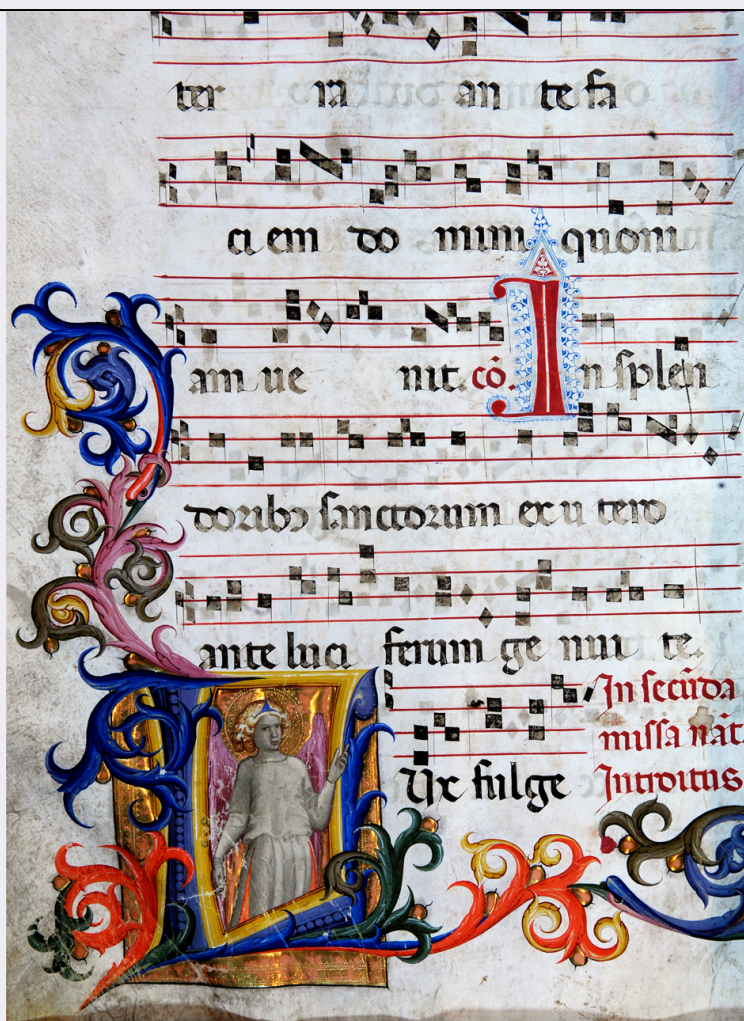 ter ra an te fa
ci em do mini quoni
am ue nit. cō. In splen
doribꝫ sanctorum ex u tero
ante luci ferum ge nui te.
In secūda
missa nāt.
Lux fulge Introitus